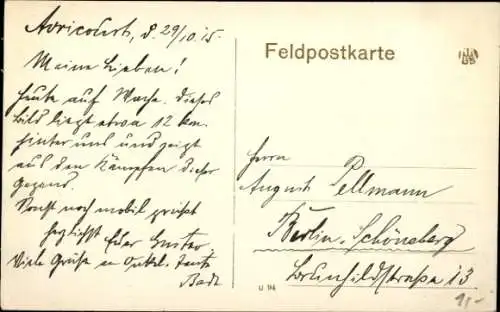 Avricourt, d. 29/10 15.
Meine Lieben!
Heute auf Wache. Dieses
Bild liegt etwa 12 km.
hinter uns und zeigt
aus den Kämpfen dieser
Gegend.
Sonst noch mobil grüßt
herzlichst Euer Gustav.
Viele Grüße an Onkel, Tante
Feldpostkarte
Herrn
August Pellmann
Berlin-Schöneberg
Brunhildstraße 13
U 94